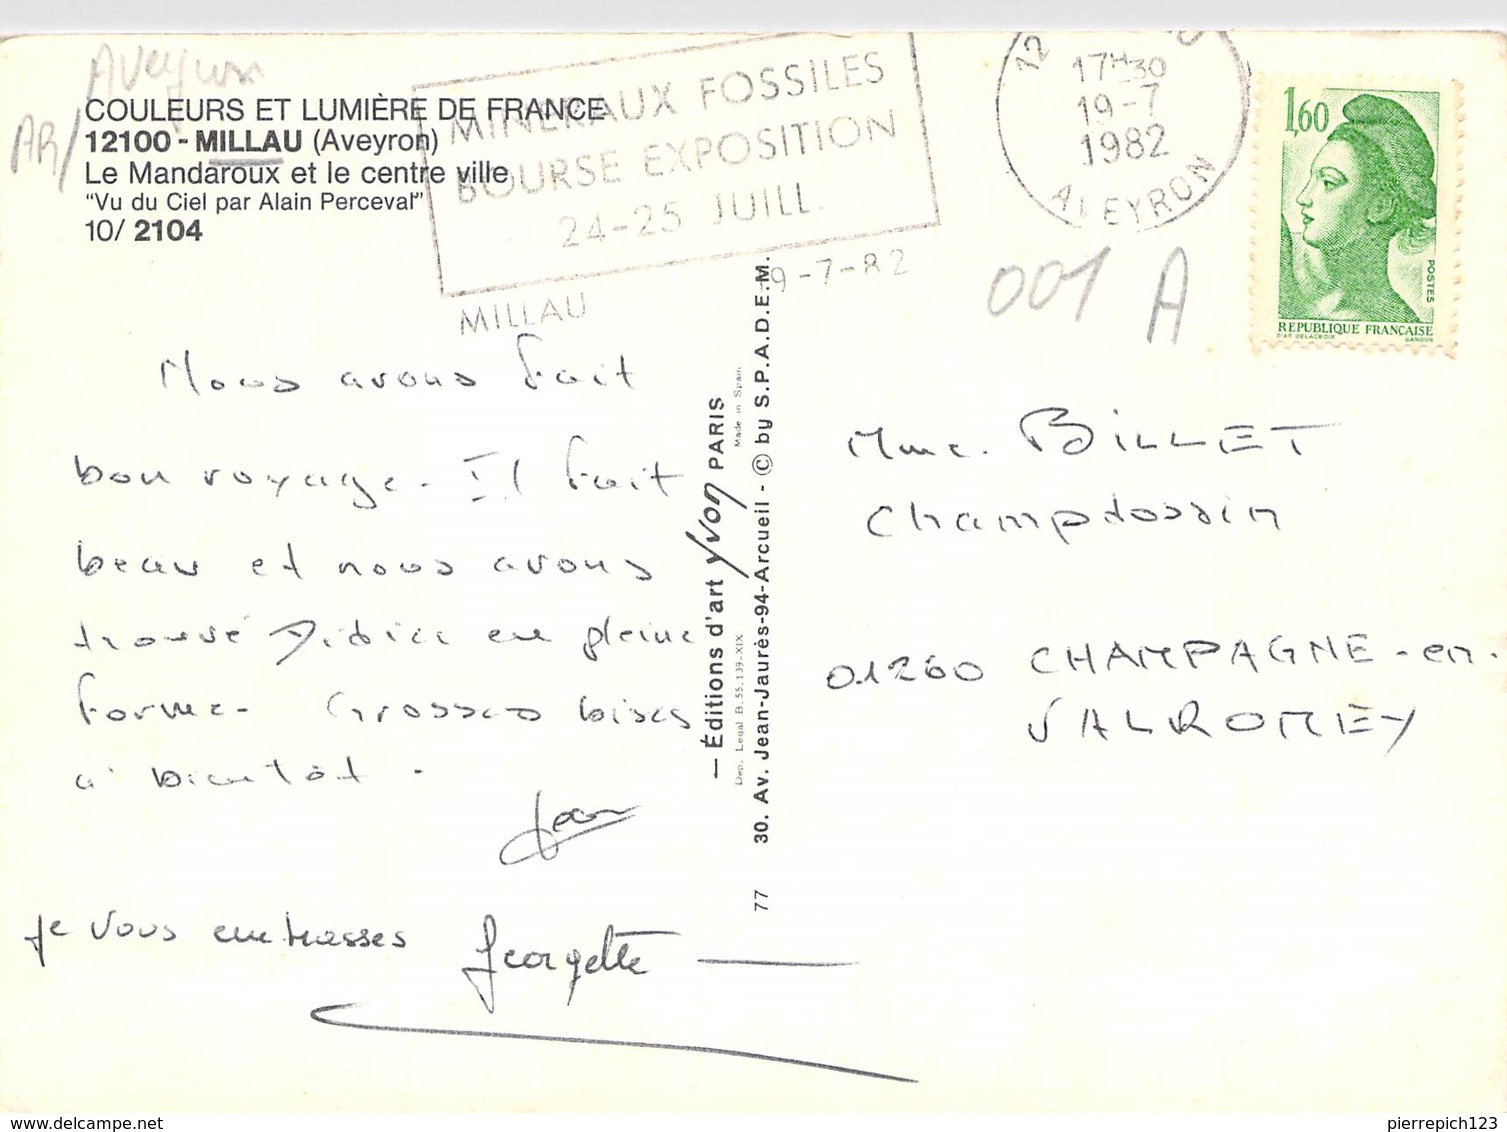 Aveyron
AR/
COULEURS ET LUMIÈRE DE FRANCE
12100 - MILLAU (Aveyron)
Le Mandaroux et le centre ville
"Vu du Ciel par Alain Perceval"
10/ 2104
MINERAUX FOSSILES
BOURSE EXPOSITION
24-25 JUILL.
MILLAU
9-7-82
12
17H30
19-7
1982
AVEYRON
1,60
POSTES
REPUBLIQUE FRANÇAISE
D'AP. DELACROIX
GANDON
001 A
Nous avons fait
bon voyage. Il fait
beau et nous avons
trouvé Didier en pleine
forme. Grosses bises
à bientôt.
Jean
je vous embrasses Georgette
— Éditions d'art Yvon PARIS
Dep. Legal B. 55.139-XIX
Made in Spain
30. Av. Jean-Jaurès-94-Arcueil - © by S.P.A.D.E.M.
77
Mme. BILLET
Champdossin
01260 CHAMPAGNE-en-
VALROMEY
delcampe.net
pierrepich123